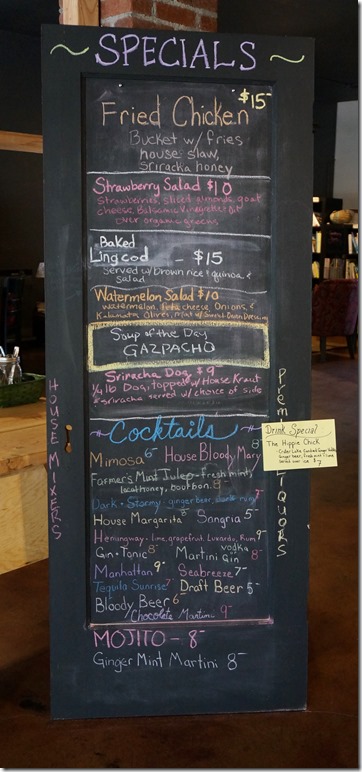 ~ SPECIALS ~
Fried Chicken $15
Bucket w/ fries
house slaw,
sriracha honey
Strawberry Salad $10
Strawberries, sliced almonds, goat
cheese, Balsamic Vinegrette
over organic greens
Baked
Lingcod - $15
Served w/ brown rice & quinoa &
salad
Watermelon Salad $10
watermelon, feta cheese, Onions, &
Kalamata Olives, mint w/
Soup of the Day
GAZPACHO
Sriracha Dog $9
1/4 lb Dog, topped w/ House Kraut
& sriracha served w/ choice of side
Cocktails
Mimosa 6- House Bloody Mary 8
Farmers Mint Julep - fresh mint,
local honey, bourbon 9-
Dark + Stormy - ginger beer, dark rum 7
House Margarita 8 Sangria 5-
Hemingway - lime, grapefruit, Luxardo, Rum 9-
Gin + Tonic 8- Martini vodka Gin 8-
Manhattan 9- Seabreeze 7-
Tequila Sunrise 7- Draft Beer 5-
Bloody Beer 6-
Chocolate Martini 9-
MOJITO - 8-
Ginger Mint Martini 8-
HOUSE MIXERS
LIQUORS
Drink Special
The Hippie Chick
ginger beer, fresh mint & lime
served over ice